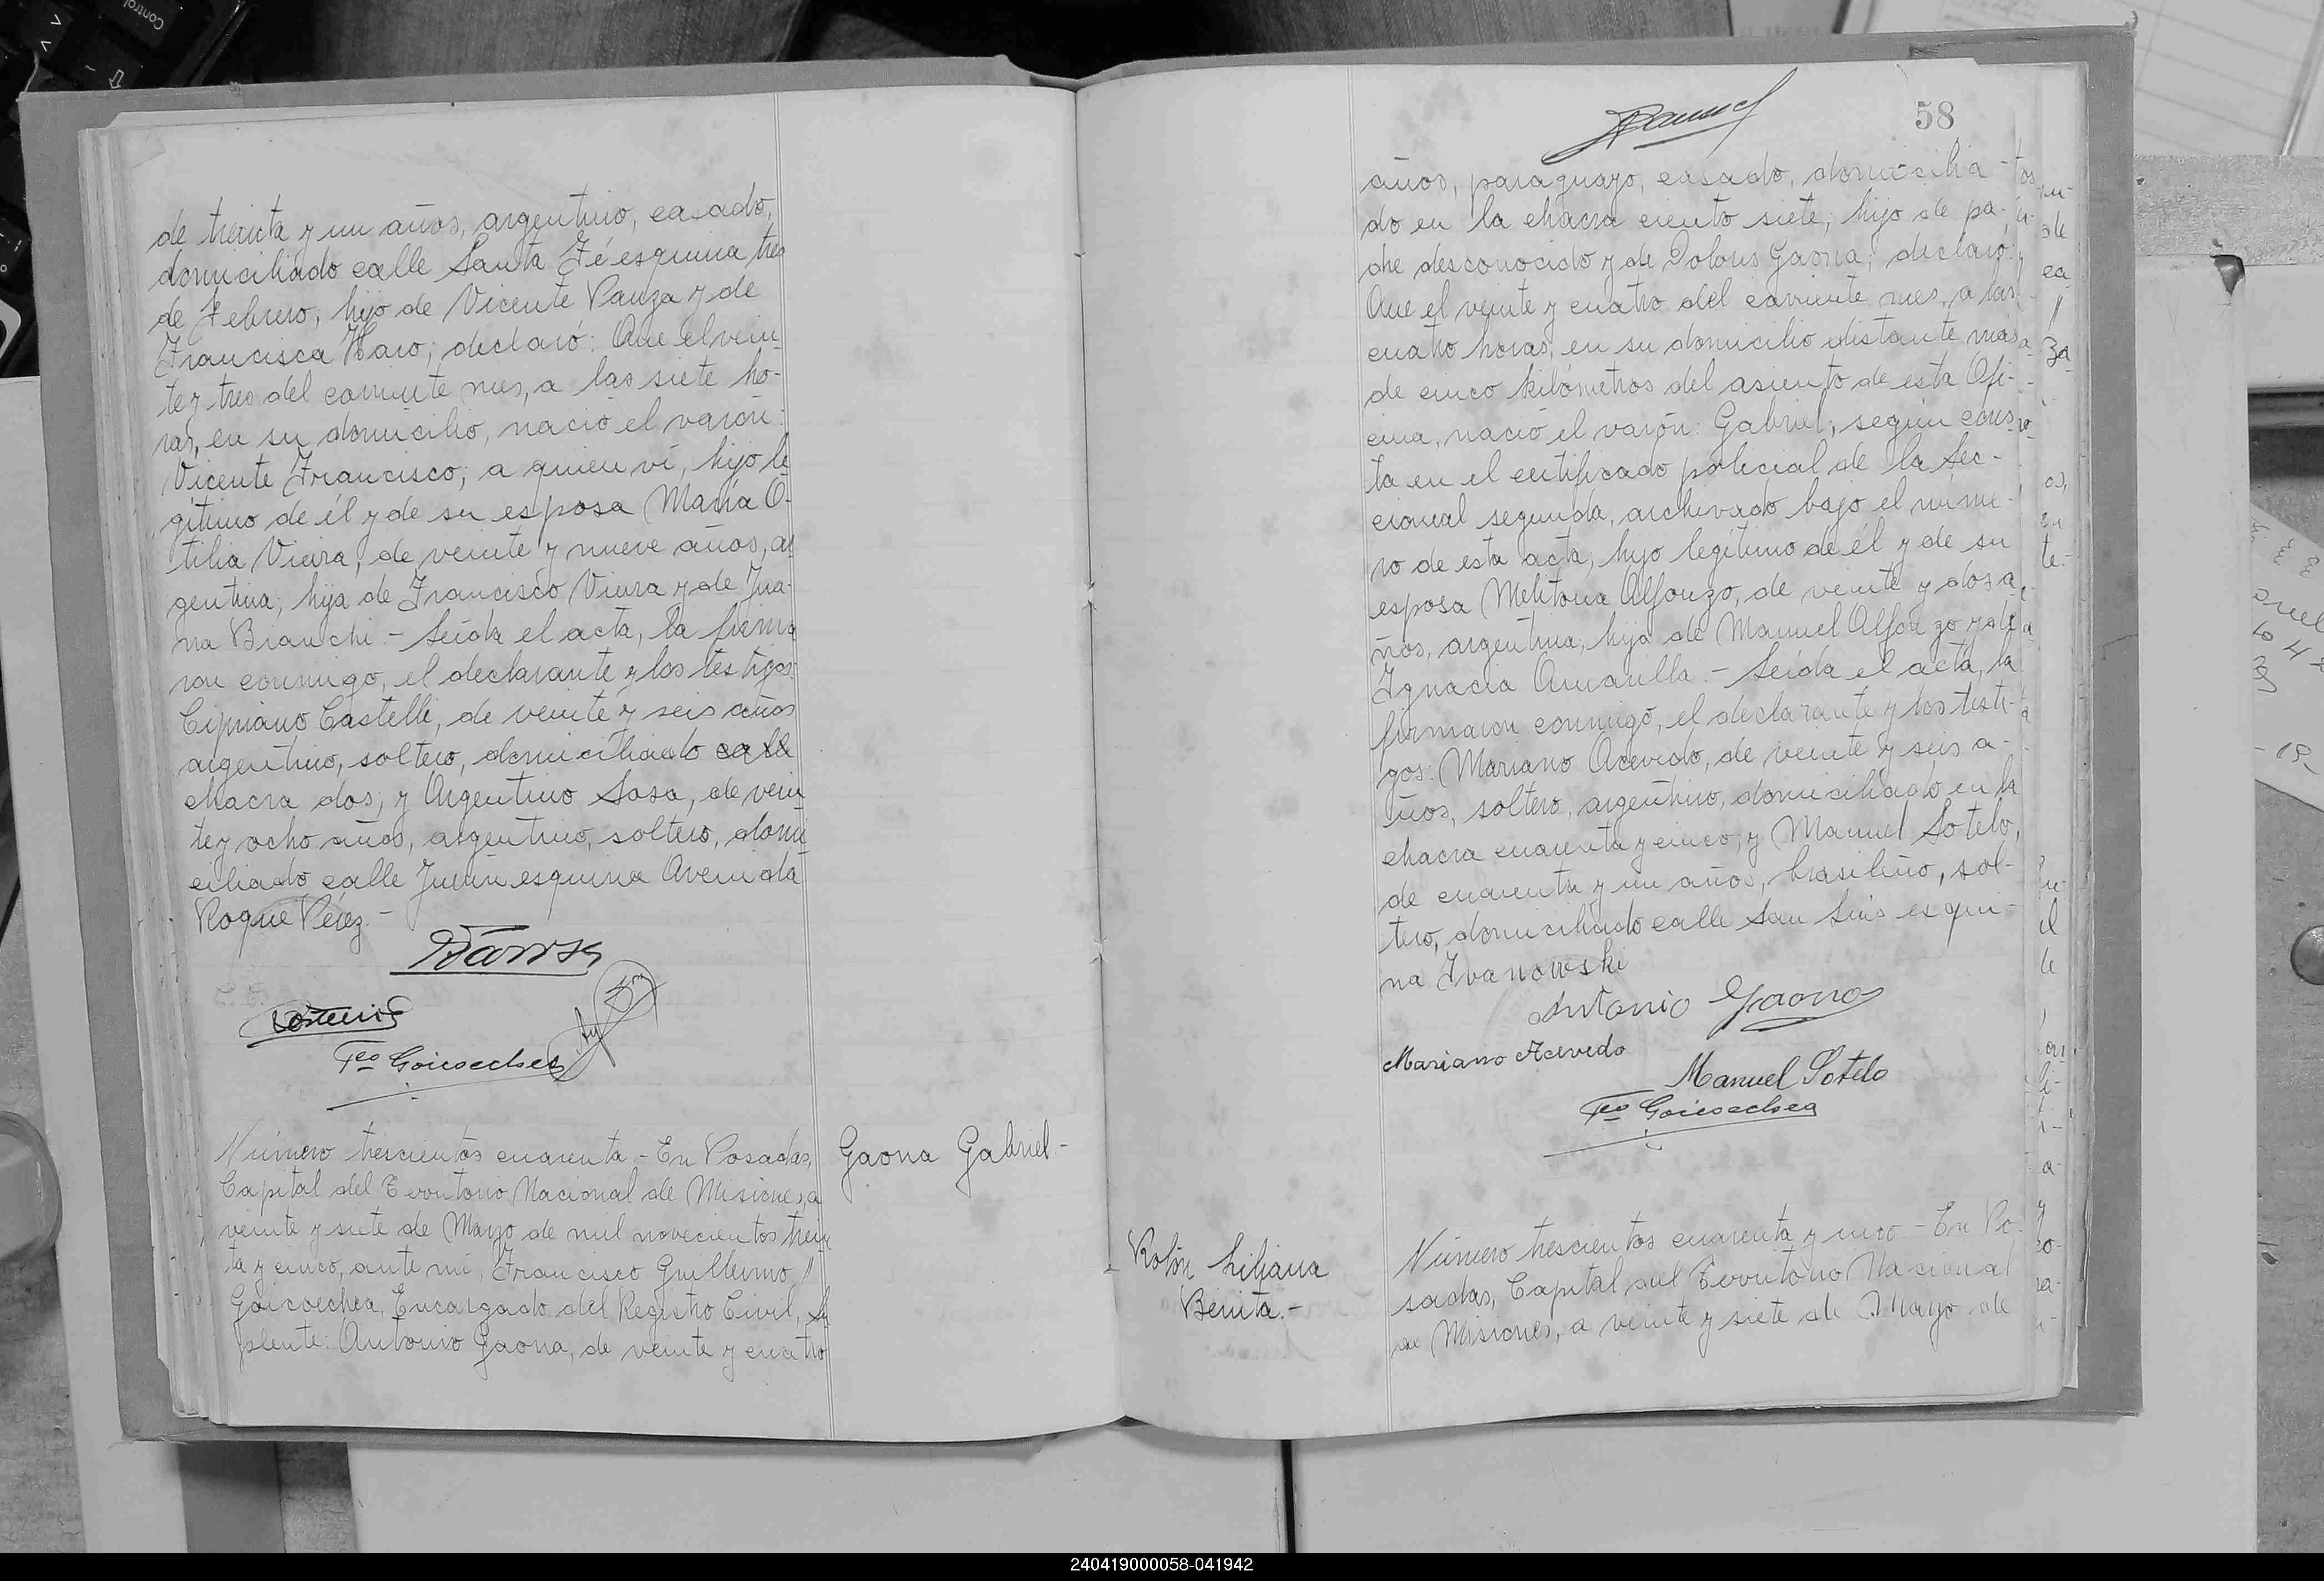 de treinta y un años, argentino, casado,
domiciliado calle Santa Fé esquina tres
de Febrero, hijo de Vicente Panza y de
Francisca Haro; declaró: Que el vein
te y tres del corriente mes, a las siete ho-
ras, en su domicilio, nació el varón:
Vicente Francisco; a quien ví, hijo le
gítimo de él y de su esposa María O-
tilia Vieira, de veinte y nueve años, ar
gentina, hija de Francisco Vieira y de Jua-
na Bianchi.- Leída el acta, la firma
ron conmigo, el declarante y los testigos:
Cipriano Castelli, de veinte y seis años
argentino, soltero, domiciliado calle
chacra dos; y Argentino Sosa, de vein
te y ocho años, argentino, soltero, domi
ciliado calle Junín esquina Avenida
Roque Pérez.-
Fco Goicoechea
Número trescientos cuarenta.- En Posadas,
Capital del Territorio Nacional de Misiones, a
veinte y siete de Mayo de mil novecientos trein
ta y cinco, ante mí, Francisco Guillermo
Goicoechea, Encargado del Registro Civil, Su
plente: Antonio Gaona, de veinte y cuatro
Gaona Gabriel.-
58
años, paraguayo, casado, domicilia-
do en la chacra ciento siete, hijo de pa-
dre desconocido y de Dolores Gaona; declaró:
Que el veinte y cuatro del corriente mes, a las
cuatro horas, en su domicilio distante más
de cinco kilómetros del asiento de esta Ofi-
cina, nació el varón: Gabriel; según cons
ta en el certificado policial de la Sec-
cional segunda, archivado bajo el núme-
ro de esta acta, hijo legítimo de él y de su
esposa Melitona Alfonzo, de veinte y dos a
ños, argentina, hija de Manuel Alfonzo y de
Ignacia Amarilla.- Leída el acta, la
firmaron conmigo, el declarante y los testi-
gos: Mariano Acevedo, de veinte y seis a-
ños, soltero, argentino, domiciliado en la
chacra cuarenta y cinco; y Manuel Sotelo,
de cuarenta y un años, brasileño, sol-
tero, domiciliado calle San Luis esqui-
na Ivanowski
Antonio Gaona
Mariano Acevedo
Manuel Sotelo
Fco Goicoechea
Rolón Liliana
Benita.-
Número trescientos cuarenta y uno.- En Po-
sadas, Capital del Territorio Nacional
de Misiones, a veinte y siete de Mayo de
240419000058-041942